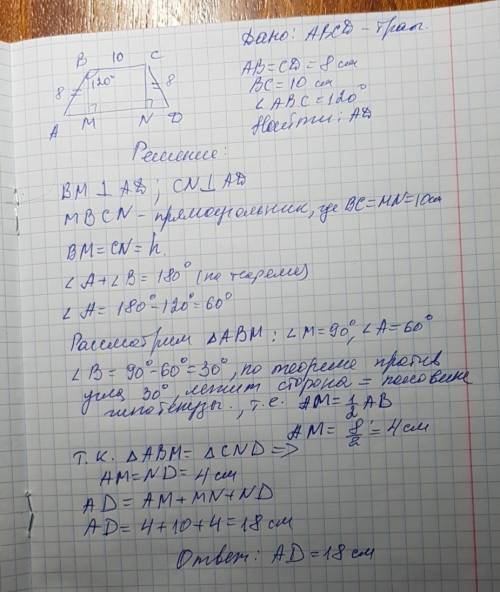 Дано: ABCD - трап.
B 10 C
120°
8 8
A M N D
AB=CD=8 см
BC=10 см
∠ABC=120°
Найти: AD
Решение:
BM⊥AD; CN⊥AD
MBCN - прямоугольник, где BC=MN=10см
BM=CN=h.
∠A+∠B=180° (по теореме)
∠A=180°-120°=60°
Рассмотрим △ABM: ∠M=90°, ∠A=60°
∠B=90°-60°=30°, по теореме против
угла 30°, лежит сторона = половине
гипотенузы., т.е. AM=1/2 AB
AM=8/2=4см
т.к. △ABM=△CND=>
AM=ND=4см
AD=AM+MN+ND
AD=4+10+4=18см
Ответ: AD=18см